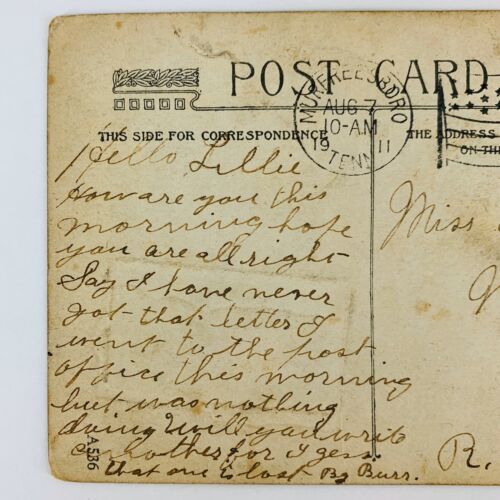 POST CARD
MURFREESBORO
AUG 7
10-AM
19 11
TENN
THIS SIDE FOR CORRESPONDENCE
THE ADDRESS
ON THIS
Hello Lillie
How are you this
morning hope
you are allright
Say I have never
got that letter I
went to the post
office this morning
but was nothing
doing Will you write
another for I gess
that one is lost By Burr.
Miss
R.
A536